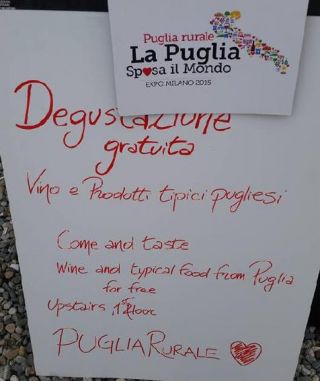 Puglia rurale
La Puglia
Sposa il Mondo
EXPO MILANO 2015
Degustazione
gratuita
Vino e Prodotti tipici pugliesi
Come and taste
Wine and typical food from Puglia
for free
Upstairs, 1st floor
PUGLIA RURALE